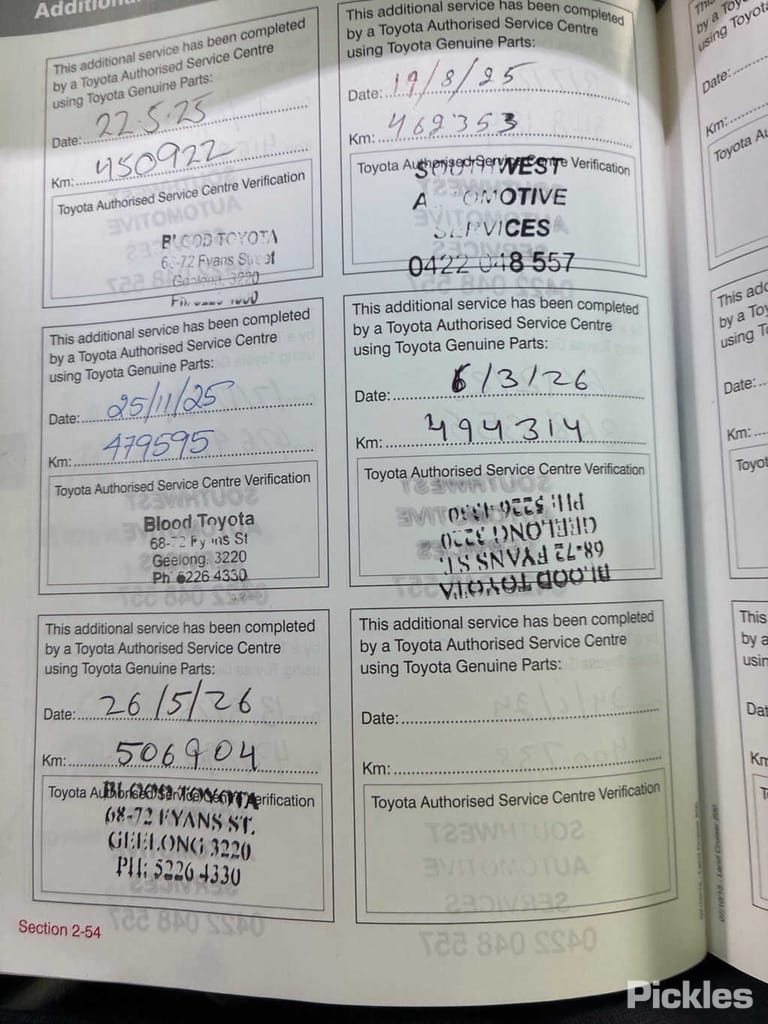 This additional service has been completed
by a Toyota Authorised Service Centre
using Toyota Genuine Parts:
Date: 22.5.25
Km: 450922
Toyota Authorised Service Centre Verification
BLOOD TOYOTA
68-72 Fyans Street
Geelong. 3220
This additional service has been completed
by a Toyota Authorised Service Centre
using Toyota Genuine Parts:
Date: 19/8/25
Km: 462353
Toyota Authorised Service Centre Verification
SOUTHWEST
AUTOMOTIVE
SERVICES
0422 048 557
This additional service has been completed
by a Toyota Authorised Service Centre
using Toyota Genuine Parts:
Date: 25/11/25
Km: 479595
Toyota Authorised Service Centre Verification
Blood Toyota
68-72 Fyans St
Geelong. 3220
Ph 5226 4330
This additional service has been completed
by a Toyota Authorised Service Centre
using Toyota Genuine Parts:
Date: 6/3/26
Km: 494314
Toyota Authorised Service Centre Verification
BLOOD TOYOTA
68-72 FYANS ST.
GEELONG 3220
PH: 5226 4330
This additional service has been completed
by a Toyota Authorised Service Centre
using Toyota Genuine Parts:
Date: 26/5/26
Km: 506904
Toyota Authorised Service Centre Verification
BLOOD TOYOTA
68-72 FYANS ST.
GEELONG 3220
PH: 5226 4330
This additional service has been completed
by a Toyota Authorised Service Centre
using Toyota Genuine Parts:
Date:
Km:
Toyota Authorised Service Centre Verification
Section 2-54
Date:
Km:
This
Date:
Km:
This
Pickles